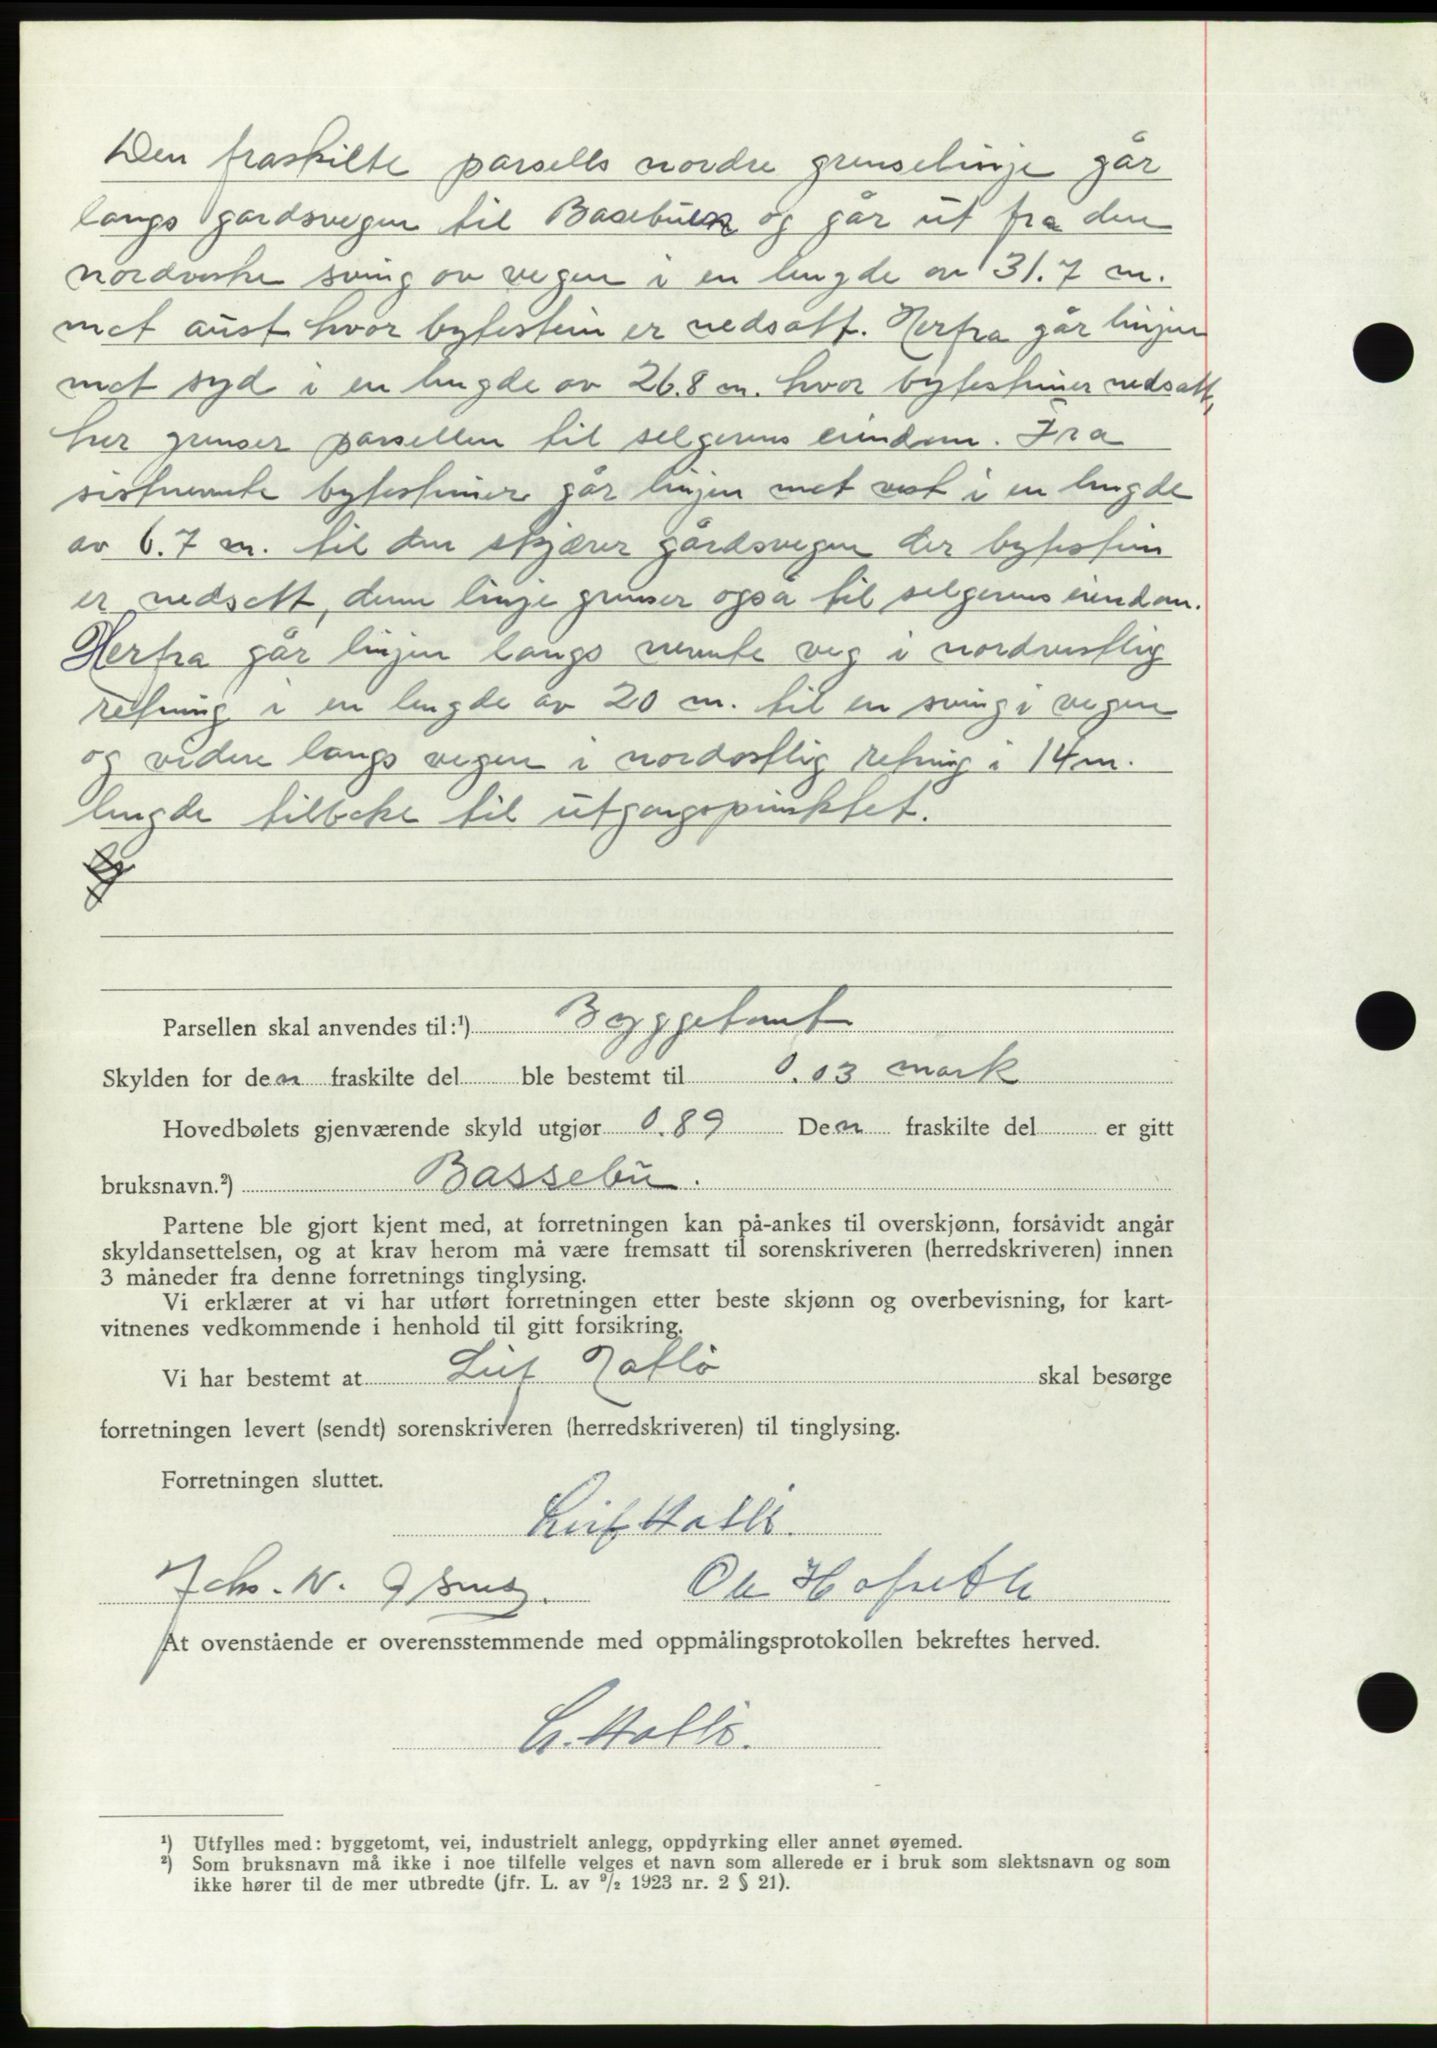 Den fraskilte parsells nordre grenselinje går
langs gardsvegen til Basebuen og går ut fra den
nordvestre sving av vegen i en lengde av 31.7 m.
mot aust hvor bytestein er nedsatt. Herfra går linjen
mot syd i en lengde av 26.8 m. hvor bytesteiner nedsatt,
her grenser parsellen til selgerens eiendom. Fra
sistnevnte bytesteiner går linjen mot vest i en lengde
av 6.7 m. til den skjærer gårdsvegen der bytestein
er nedsatt, denne linje grenser også til selgerens eiendom.
Herfra går linjen langs nevnte veg i nordvestlig
retning i en lengde av 20 m. til en sving i vegen
og videre langs vegen i nordostlig retning i 14 m.
lengde tilbake til utgangspunktet.
Parsellen skal anvendes til:¹) Byggetomt
Skylden for den fraskilte del ble bestemt til 0.03 mark
Hovedbølets gjenværende skyld utgjør 0.89 Den fraskilte del er gitt
bruksnavn.²) Bassebu.
Partene ble gjort kjent med, at forretningen kan på-ankes til overskjønn, forsåvidt angår
skyldansettelsen, og at krav herom må være fremsatt til sorenskriveren (herredskriveren) innen
3 måneder fra denne forretnings tinglysing.
Vi erklærer at vi har utført forretningen etter beste skjønn og overbevisning, for kart-
vitnenes vedkommende i henhold til gitt forsikring.
Vi har bestemt at Leif Hatlø skal besørge
forretningen levert (sendt) sorenskriveren (herredskriveren) til tinglysing.
Forretningen sluttet.
Leif Hatlø.
Johs. N. Ole Hofseth
At ovenstående er overensstemmende med oppmålingsprotokollen bekreftes herved.
L. Hatlø.
¹) Utfylles med: byggetomt, vei, industrielt anlegg, oppdyrking eller annet øyemed.
²) Som bruksnavn må ikke i noe tilfelle velges et navn som allerede er i bruk som slektsnavn og som
ikke hører til de mer utbredte (jfr. L. av ⁹/₂ 1923 nr. 2 § 21).